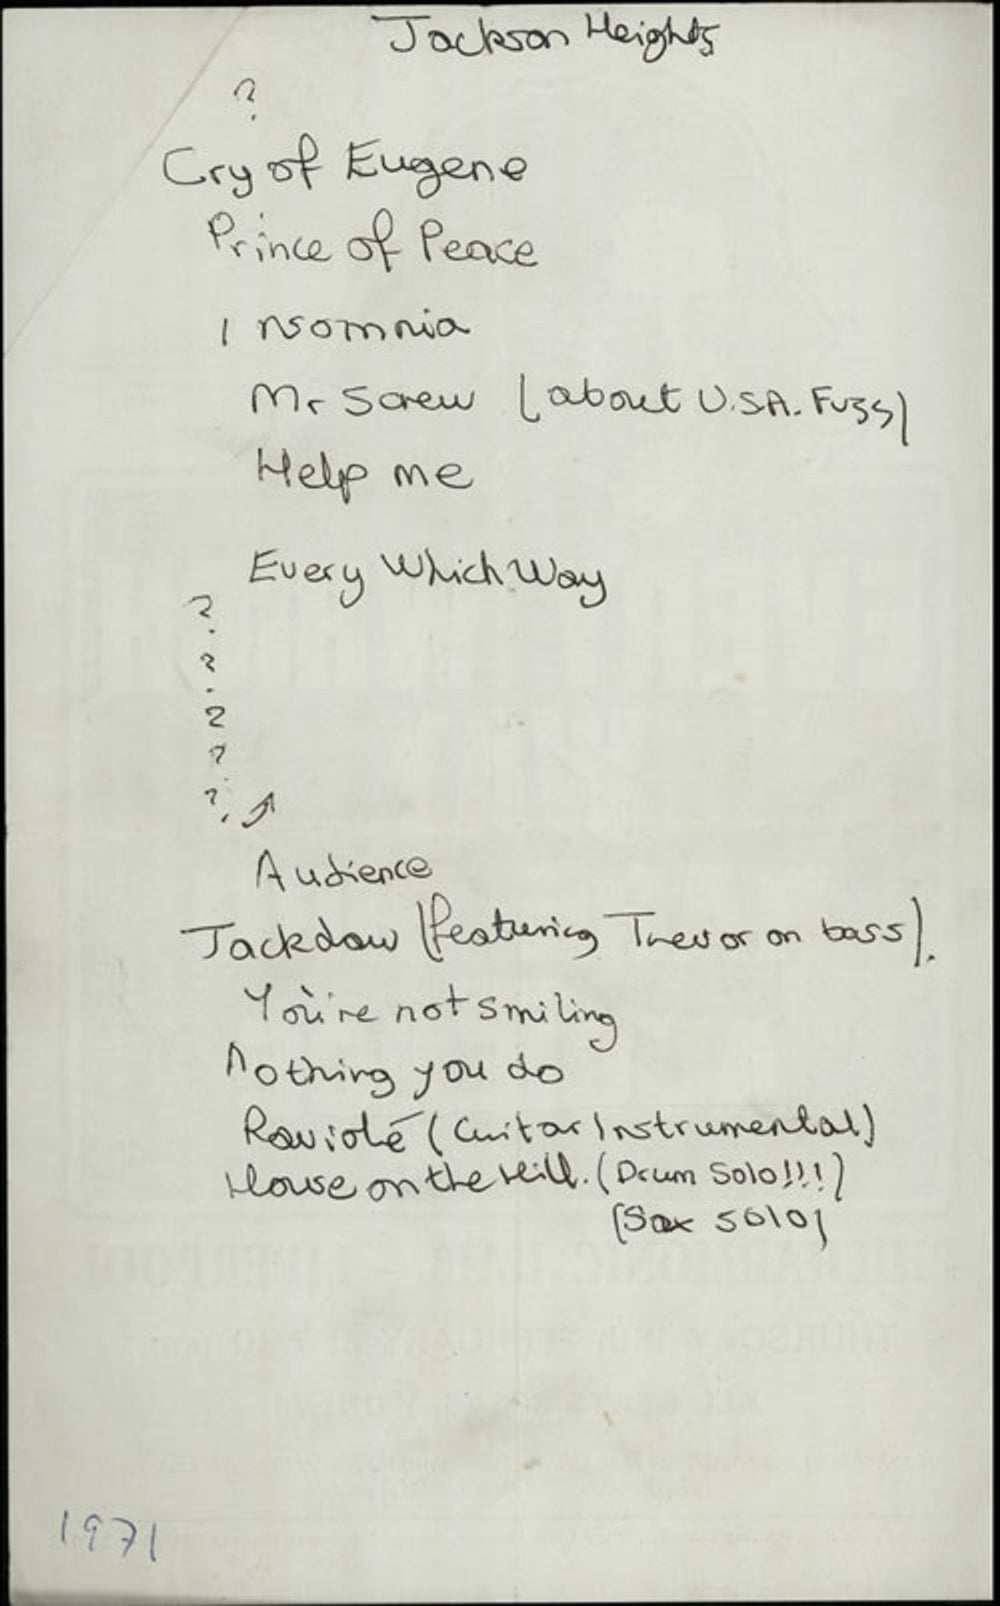 Jackson Heights
?
Cry of Eugene
Prince of Peace
Insomnia
Mr Screw (about U.S.A. Fuzz)
Help me
Every Which Way
?
?
?
?
?
Audience
Jackdaw (featuring Trevor on bass).
You're not smiling
Nothing you do
Raviolé (Guitar Instrumental)
House on the Hill. (Drum Solo!!!)
(Sax solo)
PHILHARMONIC HALL - LIVERPOOL
1971